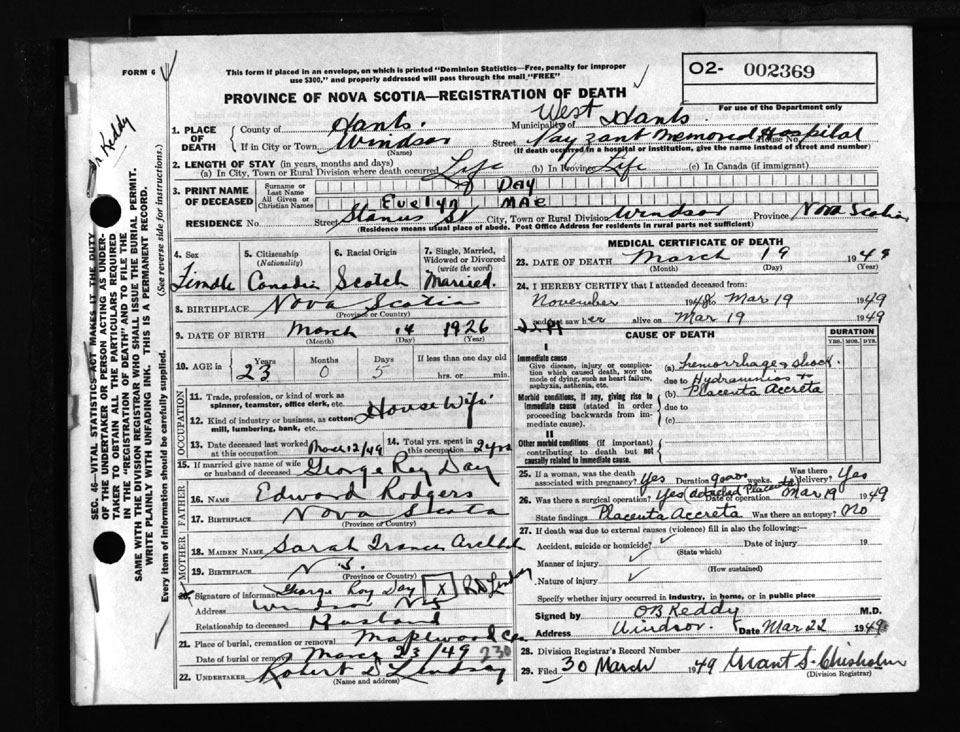 FORM 6
This form if placed in an envelope, on which is printed "Dominion Statistics—Free, penalty for improper
use $300," and properly addressed will pass through the mail "FREE"
O2- 002369
For use of the Department only
PROVINCE OF NOVA SCOTIA—REGISTRATION OF DEATH
Dr Keddy
SEC. 46—VITAL STATISTICS ACT MAKES IT THE DUTY
OF THE UNDERTAKER OR PERSON ACTING AS UNDER-
TAKER TO OBTAIN ALL THE PARTICULARS REQUIRED
IN THE "REGISTRATION OF DEATH" AND TO FILE THE
SAME WITH THE DIVISION REGISTRAR WHO SHALL ISSUE THE BURIAL PERMIT.
WRITE PLAINLY WITH UNFADING INK. THIS IS A PERMANENT RECORD.
(See reverse side for instructions.)
Every item of information should be carefully supplied.
1. PLACE OF DEATH
County of Hants. Municipality of West Hants.
If in City or Town Windsor Street Payzant Memorial Hospital House No.
(Name) (If death occurred in a hospital or institution, give the name instead of street and number)
2. LENGTH OF STAY (in years, months and days)
(a) In City, Town or Rural Division where death occurred Life (b) In Province Life (c) In Canada (if immigrant)
3. PRINT NAME OF DECEASED
Surname or Last Name Day
All Given or Christian Names Evelyn Mae
RESIDENCE No. Street Stanus St City, Town or Rural Division Windsor Province Nova Scotia
(Residence means usual place of abode. Post Office Address for residents in rural parts not sufficient)
4. Sex 5. Citizenship (Nationality) 6. Racial Origin 7. Single, Married, Widowed or Divorced (write the word)
Female Canadian Scotch Married.
8. BIRTHPLACE Nova Scotia
(Province or Country)
9. DATE OF BIRTH March 14 1926
(Month) (Day) (Year)
10. AGE in Years Months Days If less than one day old
23 0 5 hrs. or min.
OCCUPATION
11. Trade, profession, or kind of work as
spinner, teamster, office clerk, etc.
12. Kind of industry or business, as cotton
mill, lumbering, bank, etc.
House Wife
13. Date deceased last worked at this occupation Mar 12/49 14. Total yrs. spent in this occupation 2 yrs
15. If married give name of wife or husband of deceased George Roy Day
FATHER
16. NAME Edward Rodgers
17. BIRTHPLACE Nova Scotia
(Province or Country)
MOTHER
18. MAIDEN NAME Sarah Frances
19. BIRTHPLACE N S.
(Province or Country)
20. Signature of informant George Roy Day X R D Lindsay
Address Windsor N S
Relationship to deceased Husband
21. Place of burial, cremation or removal Maplewood Cem
Date of burial or removal March 23/49 230
22. UNDERTAKER Robert D Lindsay
(Name and address)
MEDICAL CERTIFICATE OF DEATH
23. DATE OF DEATH March 19 1949
(Month) (Day) (Year)
24. I HEREBY CERTIFY that I attended deceased from:
November 1948 Mar 19 1949
and last saw her alive on Mar 19 1949
CAUSE OF DEATH
DURATION
YRS. MOS. DYS.
I
Immediate cause
Give disease, injury or complication which caused death, NOT the mode of dying, such as heart failure, asphyxia, asthenia, etc.
(a) Hemorrhage, shock.
due to Hydramnios +
Morbid conditions, if any, giving rise to immediate cause (stated in order proceeding backwards from immediate cause).
(b) Placenta Accreta
due to
(c)
II
Other morbid conditions (if important) contributing to death but not causally related to immediate cause.
25. If a woman, was the death associated with pregnancy? Yes Duration weeks. Was there delivery? Yes
26. Was there a surgical operation? Yes (detached Placenta) Date of operation Mar 19 1949
State findings Placenta Accreta Was there an autopsy? No
27. If death was due to external causes (violence) fill in also the following:—
Accident, suicide or homicide? Date of injury 19
(State which)
Manner of injury
(How sustained)
Nature of injury
Specify whether injury occurred in industry, in home, or in public place
Signed by O B Keddy M.D.
Address Windsor. Date Mar 22 1949
28. Division Registrar's Record Number
29. Filed 30 March 1949 Grant S. Chisholm
(Division Registrar)